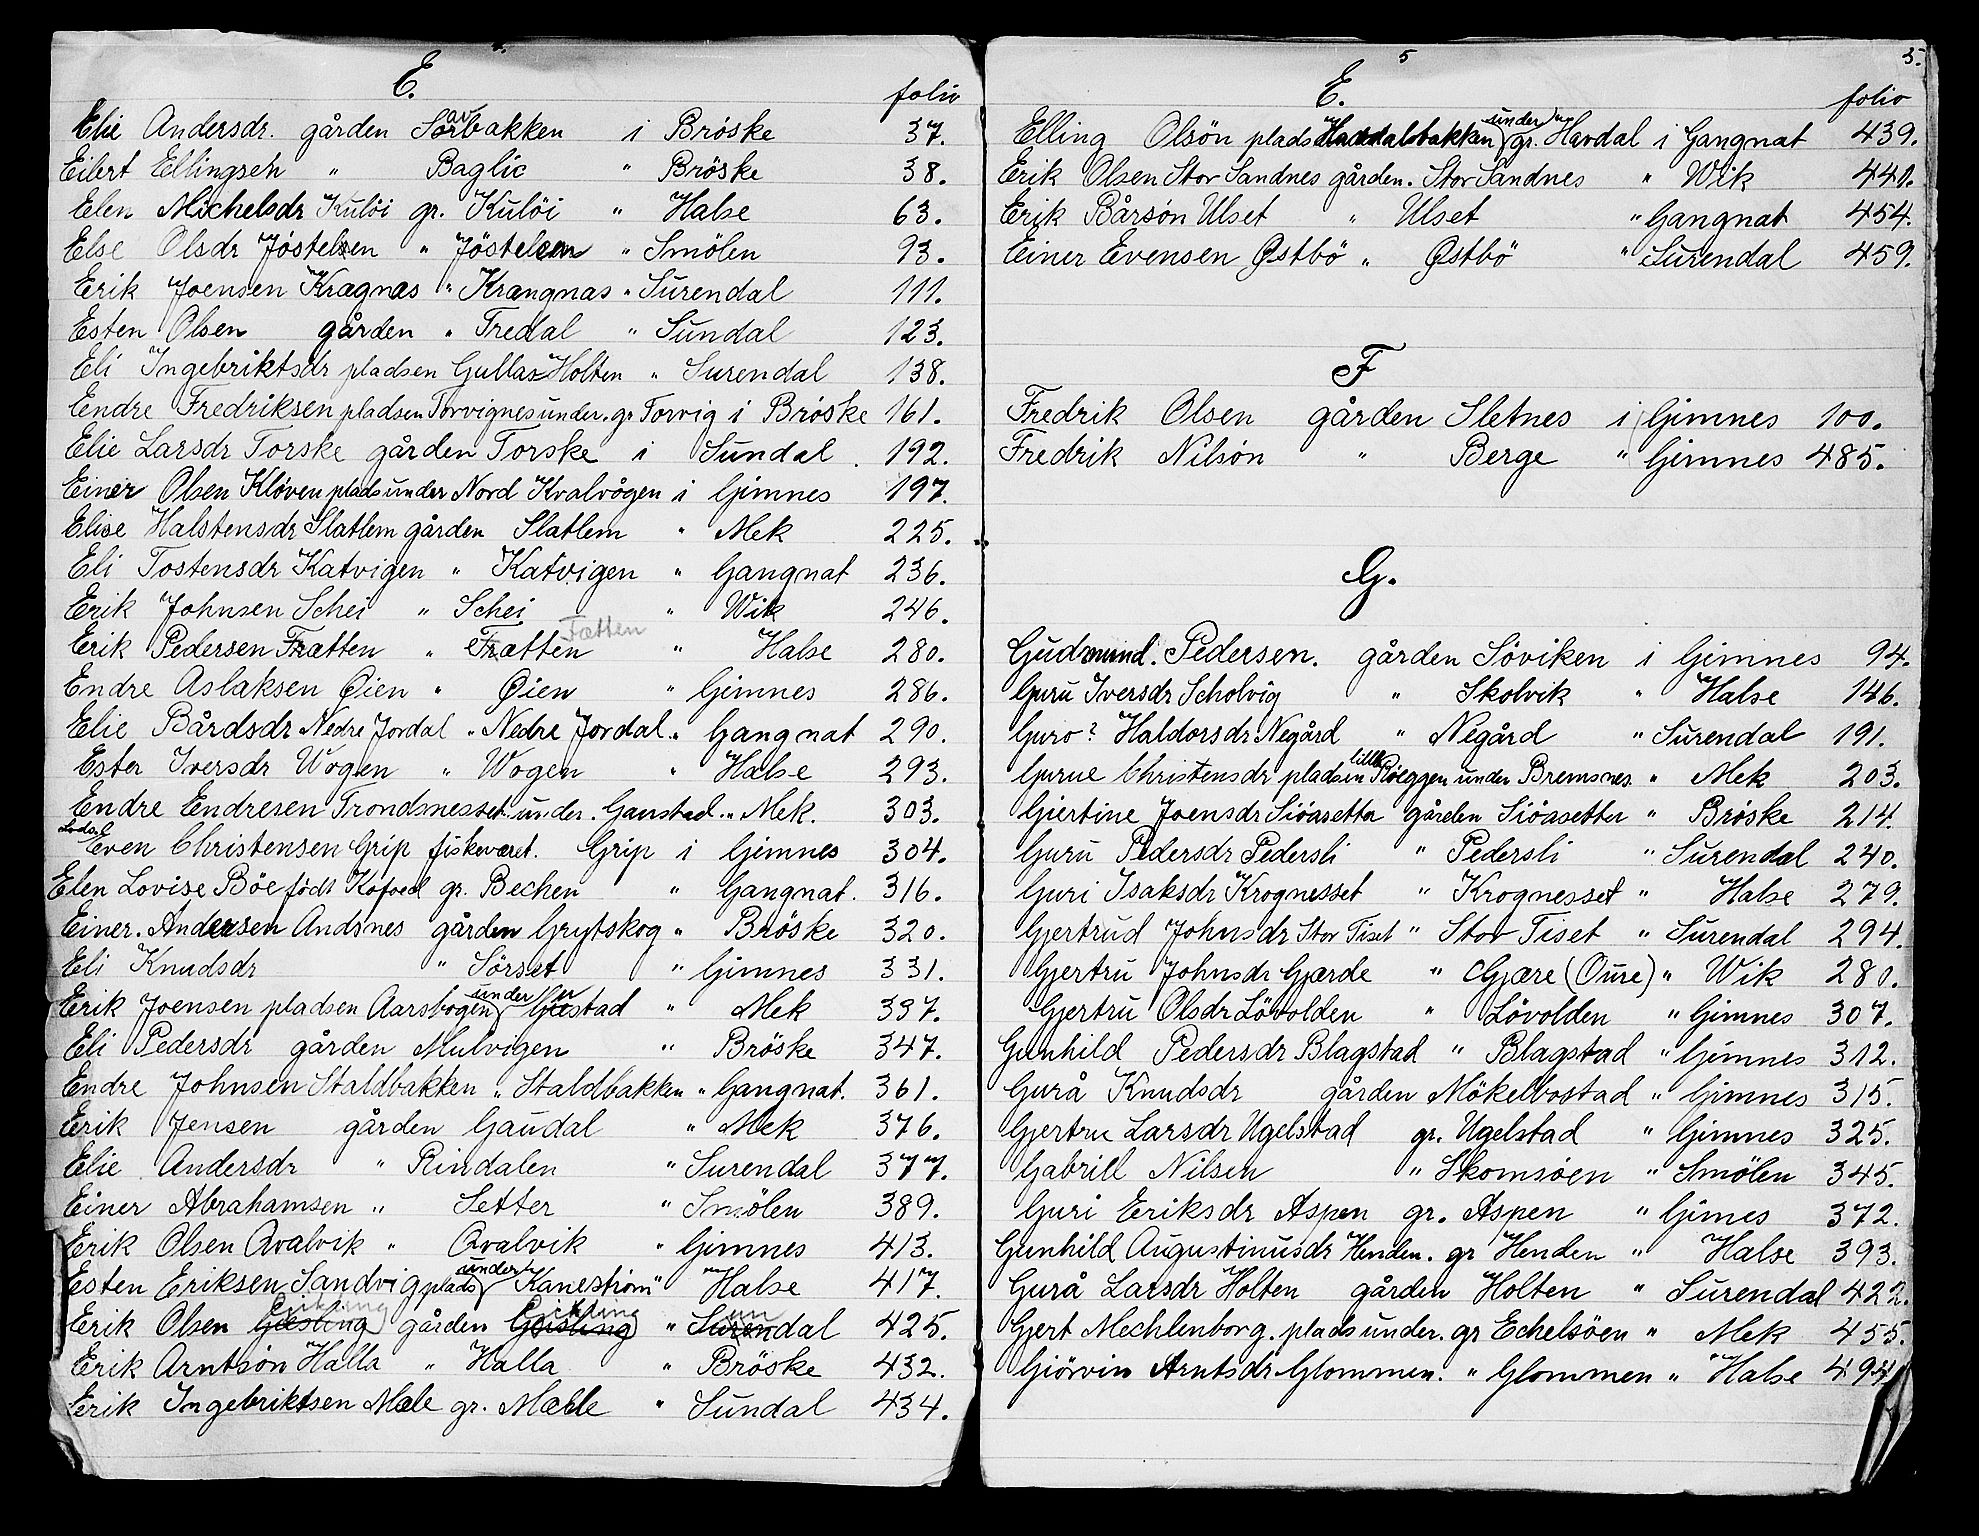 4.
E.
folio
Elie Andersdr. gården Sørbakken i Bröske 37.
Eilert Ellingsen " Baglic " Bröske 38.
Elen Michelsdr Kulöi gr. Kulöi " Halse 63.
Else Olsdr Jöstelsen " Jöstelsen " Smölen 93.
Erik Joensen Kragnas " Krangnas " Surendal 111.
Esten Olsen gården " Fredal " Sundal 123.
Eli Ingebriktsdr pladsen Gullas Holten " Surendal 138.
Endre Fredriksen pladsen Torvignes under. gr Torvig i Bröske 161.
Elie Larsdr Torske gården Torske i Sundal. 192.
Einer Olsen Klöven plads under Nord Kvalvågen i Gimnes 197.
Elise Halstensdr Slatlem gården Slatlem " Mek 225.
Eli Tostensdr Katvigen " Katvigen " Gangnat 236.
Erik Johnsen Schei " Schei " Wik 246.
Fætten
Erik Pedersen Frætten " Frætten " Halse 280.
Endre Aslaksen Øien " Øien " Gimnes 286.
Elie Bårdsdr Nedre Jordal " Nedre Jordal " Gangnat 290.
Ester Iversdr Wogen " Wogen " Halse 293.
Endre Endresen Trondsnesset under. Ganstad " Mek. 303.
Lods
Even Christensen Grip fiskeværet. Grip i Gimnes 304.
Elen Lovise Böe födt Kofoed gr. Bechen " Gangnat. 316.
Einer. Andersen Andsnes gården Grytskog " Bröske 320.
Eli Knudsdr " Sörset " Gimnes 331.
Erik Joensen pladsen Aarsbogen under Gustad " Mek 337.
Eli Pedersdr gården Mulvigen " Bröske 347.
Endre Johnsen Staldbakken " Staldbakken " Gangnat. 361.
Erik Jensen gården Gaudal " Mek 376.
Elie Andersdr " Rindalen " Surendal 377.
Einer Abrahamsen " Setter " Smölen 389.
Erik Olsen Qvalvik " Qvalvik " Gimnes 413.
Esten Eriksen Sandvig plads under Kanestrøm " Halse 417.
Erik Olsen Gæsling gården Geisling " Surendal 425.
Erik Arntsön Halla " Halla " Bröske 432.
Erik Ingebriktsen Mæle gr. Mæhle " Sundal 434.
5
5.
E.
folio
Elling Olsön plads Havdalsbakken under gr. Havdal i Gangnat 439.
Erik Olsen Stor Sandnes gården. Stor Sandnes " Wik 441.
Erik Bårsön Ulset " Ulset " Gangnat 454.
Einer Evensen Østbö " Østbö " Surendal 459.
F
Fredrik Olsen gården Sletnes i Gimnes 100.
Fredrik Nilsön " Berge " Gimnes 485.
G.
Gudmund. Pedersen. gården Söviken i Gimnes 94.
Guru Iversdr Scholvig " Skolvik " Halse 146.
Guro? Haldorsdr Negård " Negård " Surendal 191.
Gurue Christensdr pladsen lille Röeggen under Bremsnes " Mek 203.
Gjertine Joensdr Siöasetter gården Siöasetter " Bröske 214.
Guru Pedersdr Pedersli " Pedersli " Surendal 240.
Guri Isaksdr Krognesset " Krognesset " Halse 279.
Gjertrud Johnsdr Stor Tiset " Stor Tiset " Surendal 294.
Gjertru Johnsdr Gjærde " Gjære (Oure) " Wik 280.
Gjertru Olsdr Lövolden " Lövolden " Gimnes 307.
Gunhild Pedersdr Blagstad " Blagstad " Gimnes 312.
Gurå Knudsdr gården Mökelbostad " Gimnes 315.
Gjertru Larsdr Ugelstad gr. Ugelstad " Gimnes 325.
Gabrill Nilsen " Skomsöen " Smölen 345.
Guri Eriksdr Aspen gr. Aspen " Gimes 372.
Gunhild Augustinusdr Henden. gr Henden " Halse 393.
Gurå Larsdr Holten gården Holten " Surendal 422.
Gjert Mechlenborg. plads under. gr Echelsöen " Mek 455.
Giörvin Arntsdr Glommen. " Glommen " Halse 494